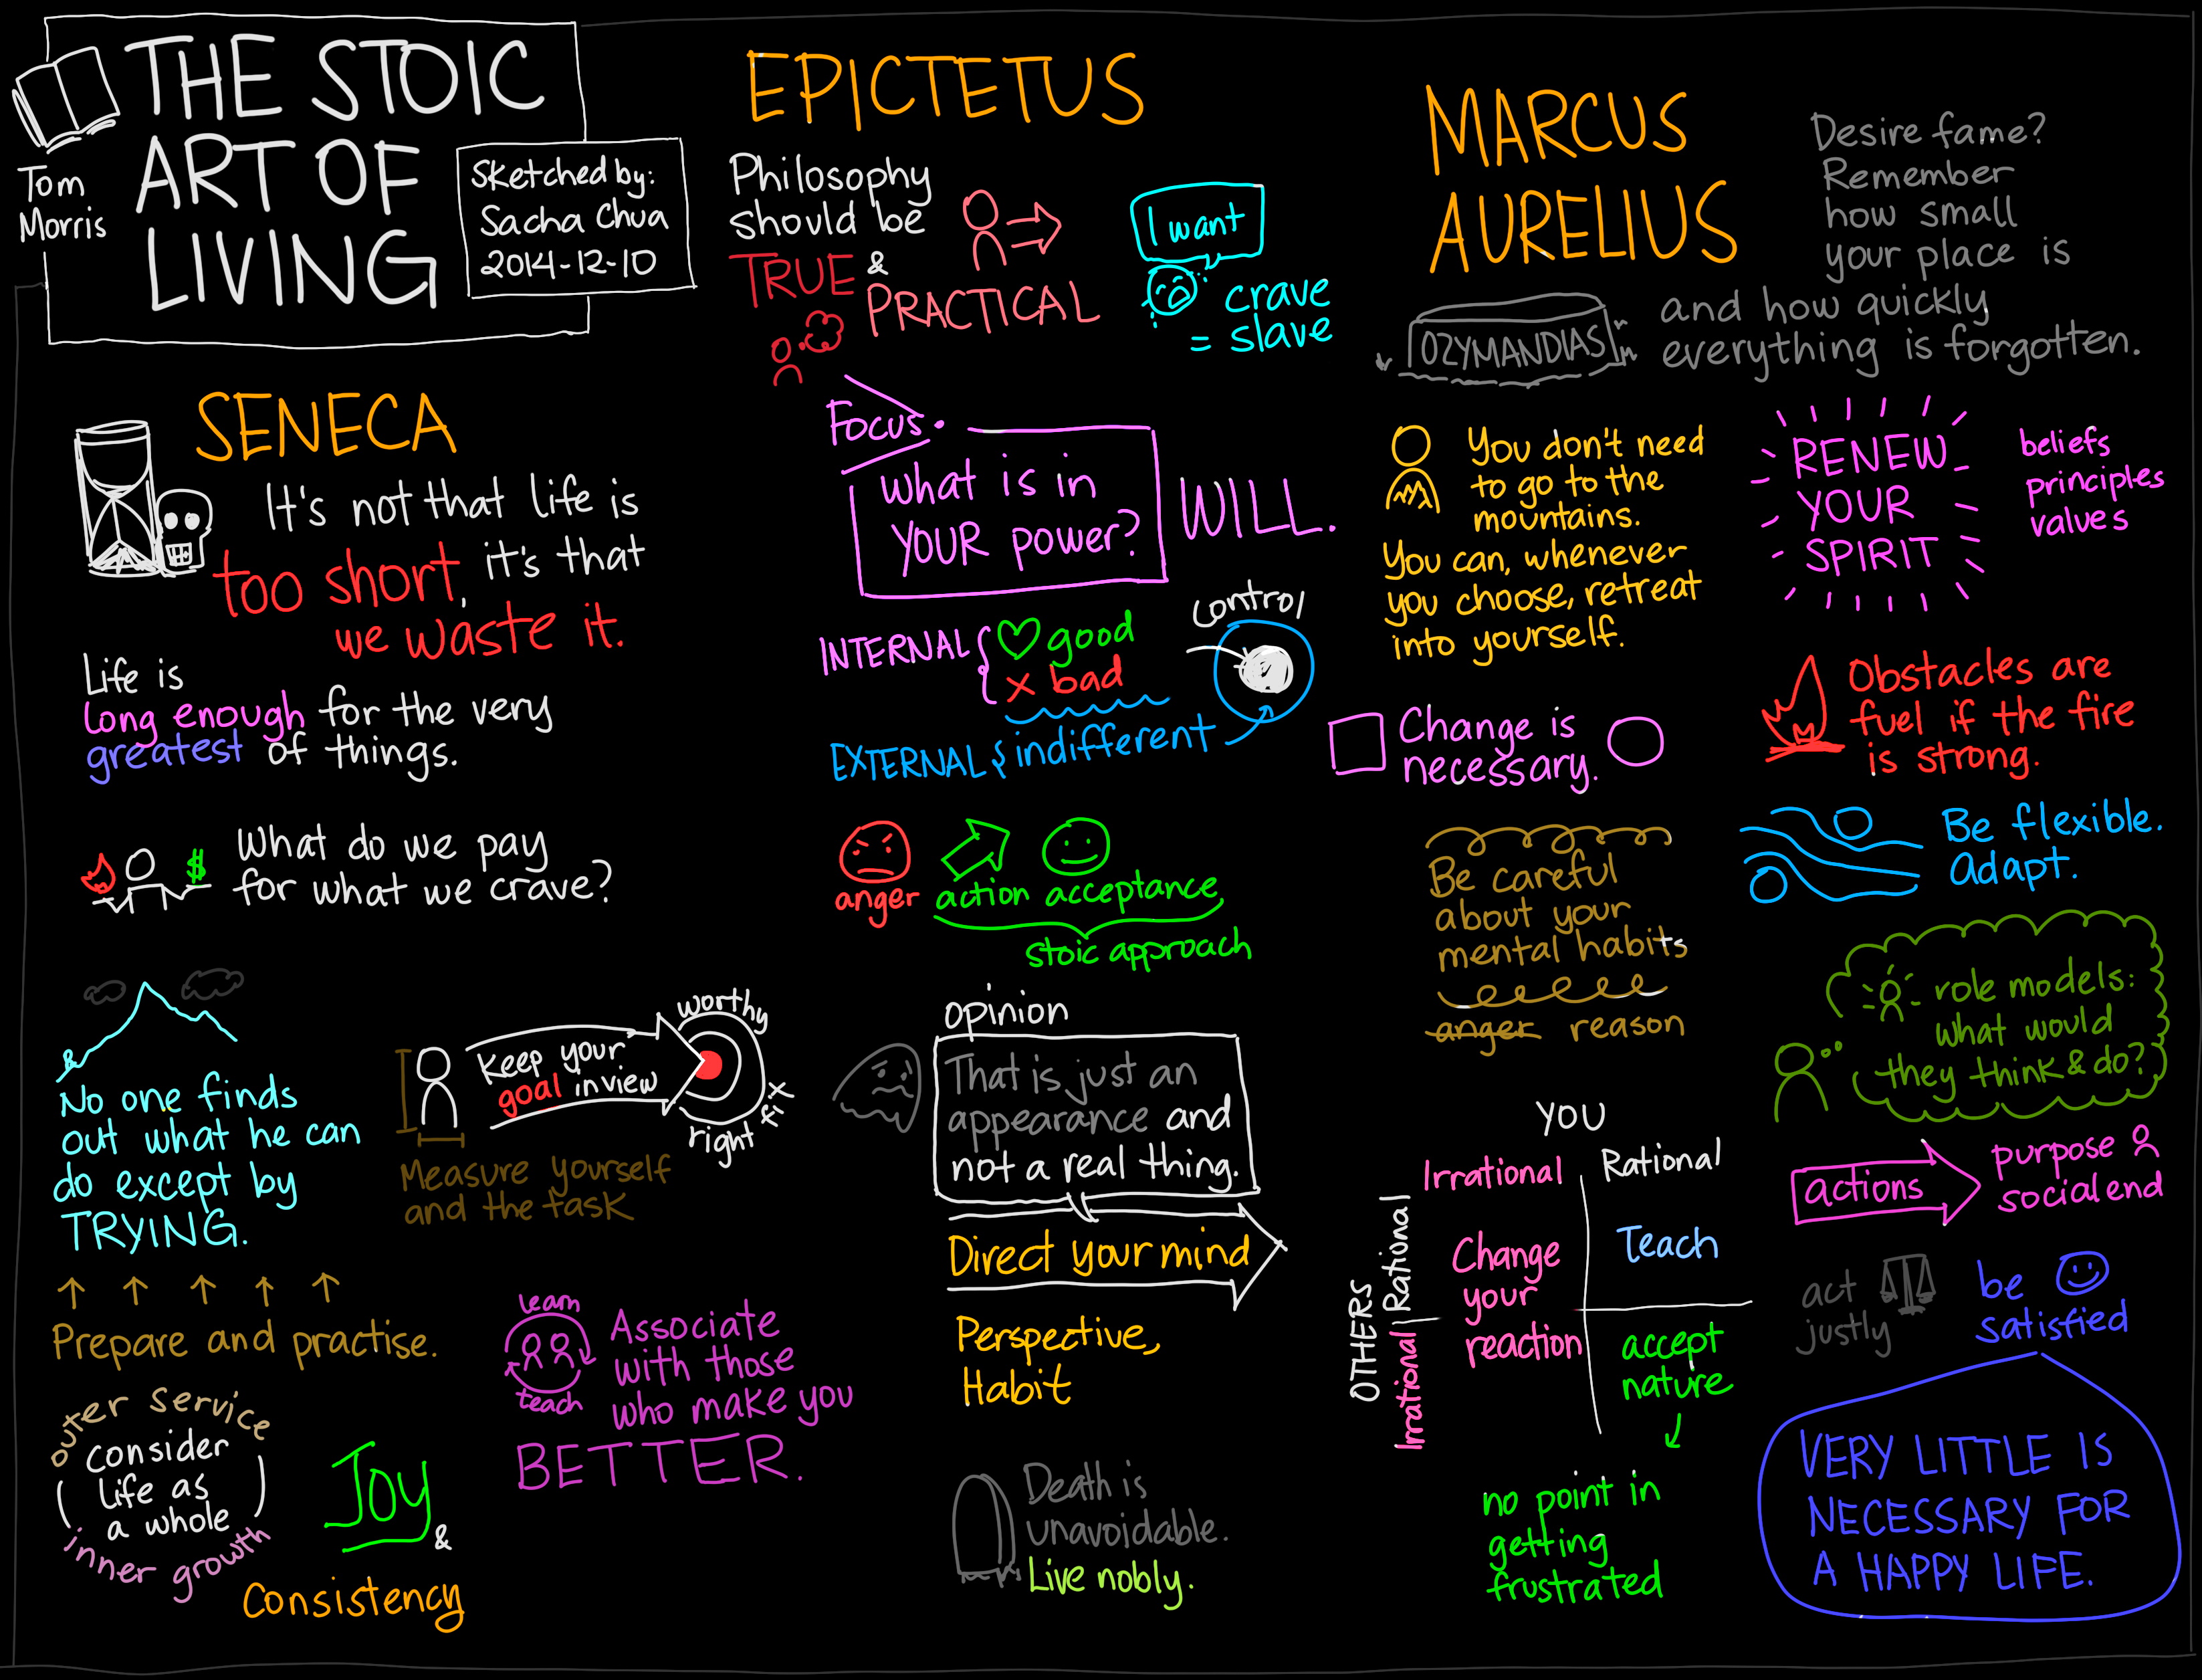 THE STOIC
ART OF
LIVING
Tom
Morris
Sketched by:
Sacha Chua
2014-12-10
SENECA
It's not that life is
too short, it's that
we waste it.
Life is
long enough for the very
greatest of things.
$
What do we pay
for what we crave?
No one finds
out what he can
do except by
TRYING.
Keep your
goal in view
worthy
fit
right
Measure yourself
and the task
Prepare and practise.
learn
teach
Associate
with those
who make you
BETTER.
outer service
consider
life as
a whole
inner growth
Joy
&
Consistency
EPICTETUS
Philosophy
should be
TRUE &
PRACTICAL
I want
crave
= slave
Focus.
What is in
YOUR power?
WILL.
INTERNAL
good
x bad
EXTERNAL indifferent
control
anger
action acceptance
stoic approach
opinion
That is just an
appearance and
not a real thing.
Direct your mind
Perspective,
Habit
Death is
unavoidable.
Live nobly.
MARCUS
AURELIUS
Desire fame?
Remember
how small
your place is
and how quickly
everything is forgotten.
OZYMANDIAS
You don't need
to go to the
mountains.
You can, whenever
you choose, retreat
into yourself.
RENEW
YOUR
SPIRIT
beliefs
principles
values
Change is
necessary.
Obstacles are
fuel if the fire
is strong.
Be flexible.
Adapt.
Be careful
about your
mental habits
anger reason
role models:
what would
they think & do?
YOU
Irrational
Rational
OTHERS
Rational
Irrational
Change
your
reaction
Teach
accept
nature
no point in
getting
frustrated
actions
purpose
social end
act
justly
be
satisfied
VERY LITTLE IS
NECESSARY FOR
A HAPPY LIFE.